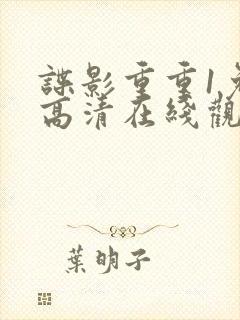 諜影重重1免
高清在綫觀
葉明子